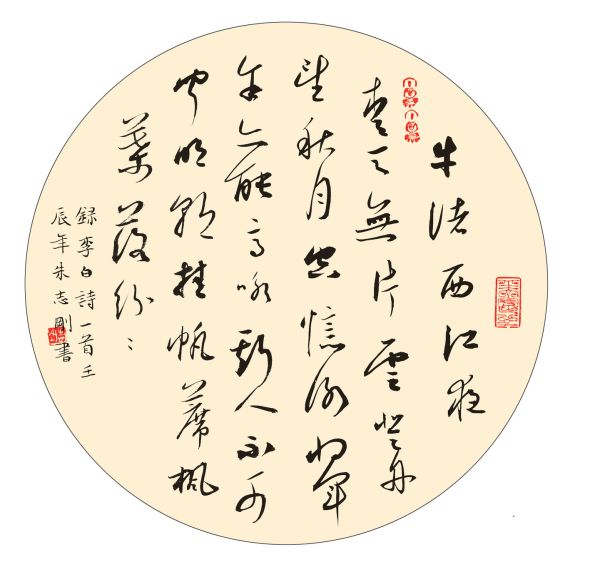 牛渚西江夜
青天無片雲登舟
望秋月空憶謝將軍
余亦能高咏斯人不可
聞明朝挂帆蓆楓
葉落紛〻
録李白詩一首壬
辰年朱志剛書